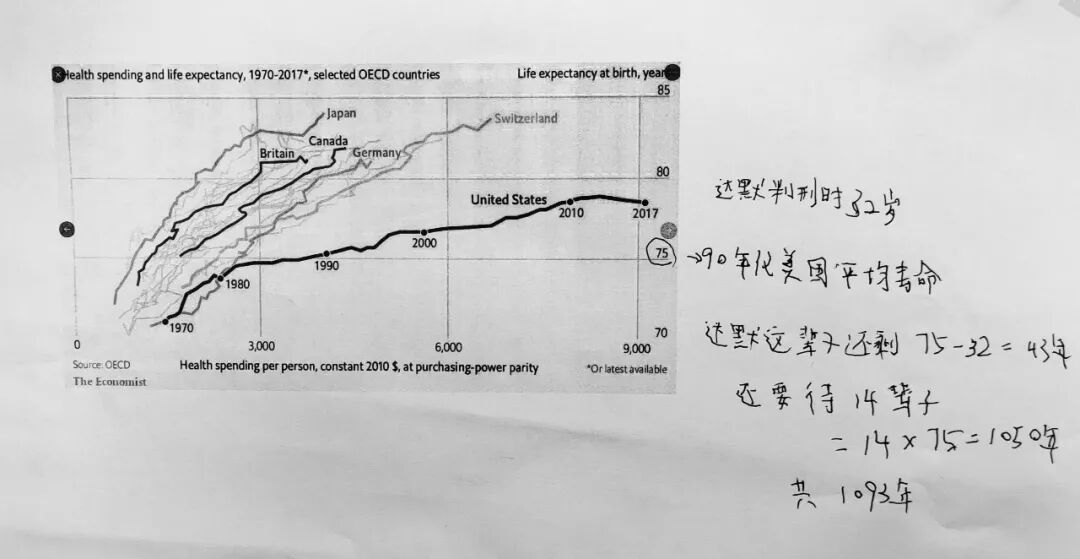 Health spending and life expectancy, 1970-2017*, selected OECD countries
Life expectancy at birth, year
85
Japan
Switzerland
Canada
Britain
Germany
80
United States
2010
2017
2000
75
1990
1980
1970
70
0
3,000
6,000
9,000
Source: OECD
Health spending per person, constant 2010 $, at purchasing-power parity
*Or latest available
The Economist
达默判刑时32岁
→90年代美国平均寿命
达默这辈子还剩 75-32=43年
还要待14辈子
=14×75=1050年
共1093年